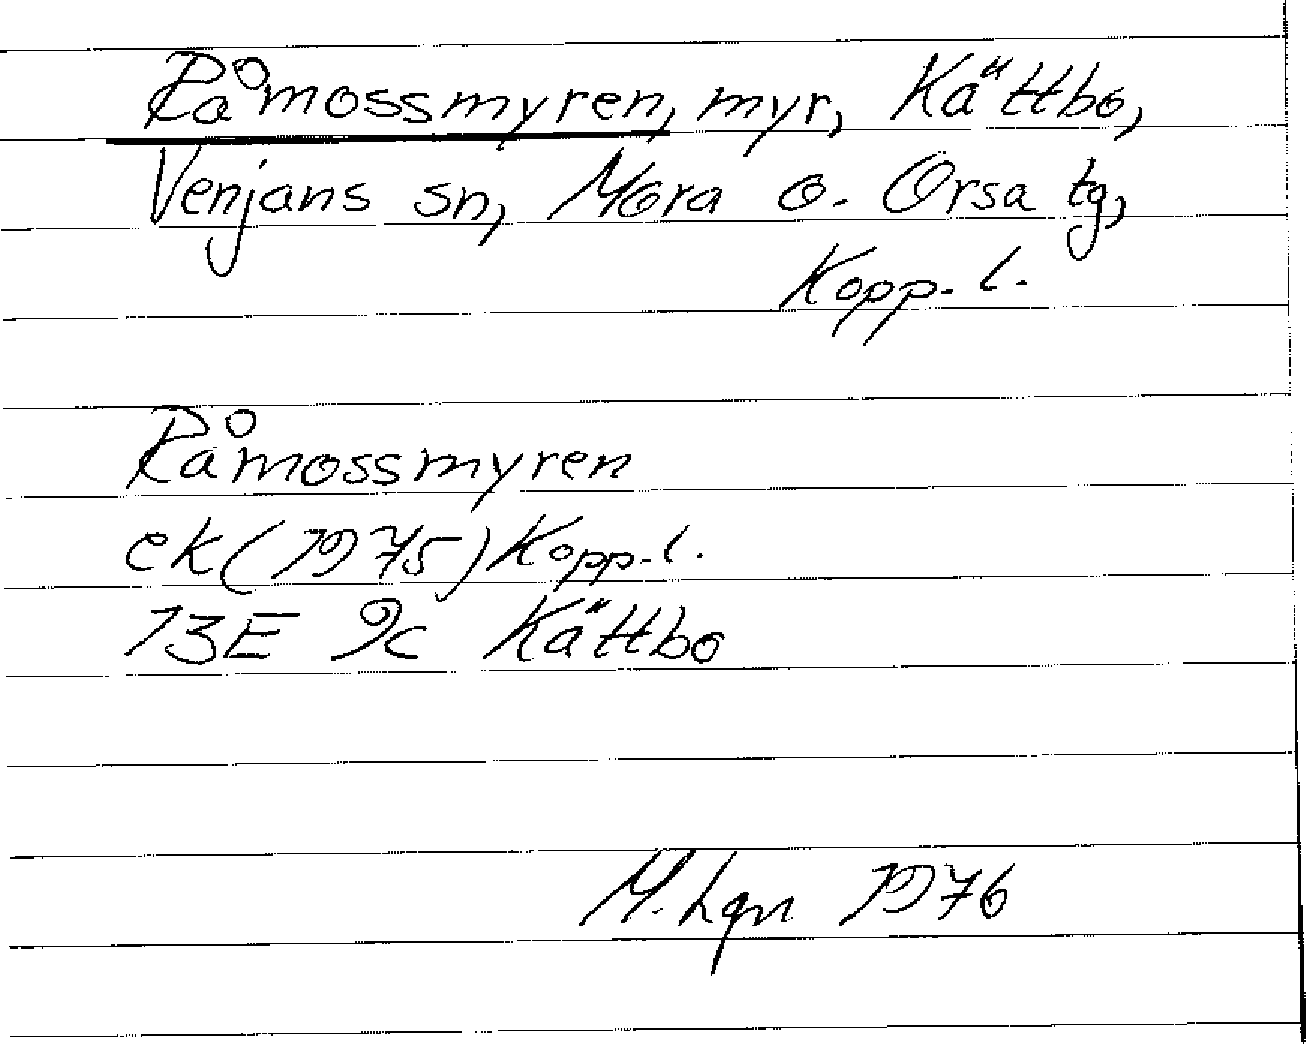 Råmossmyren, myr, Kättbo,
Venjans sn, Mora o. Orsa tg,
Kopp. l.
Råmossmyren
ek (1975) Kopp. l.
13E 9c Kättbo
M. Lgn 1976